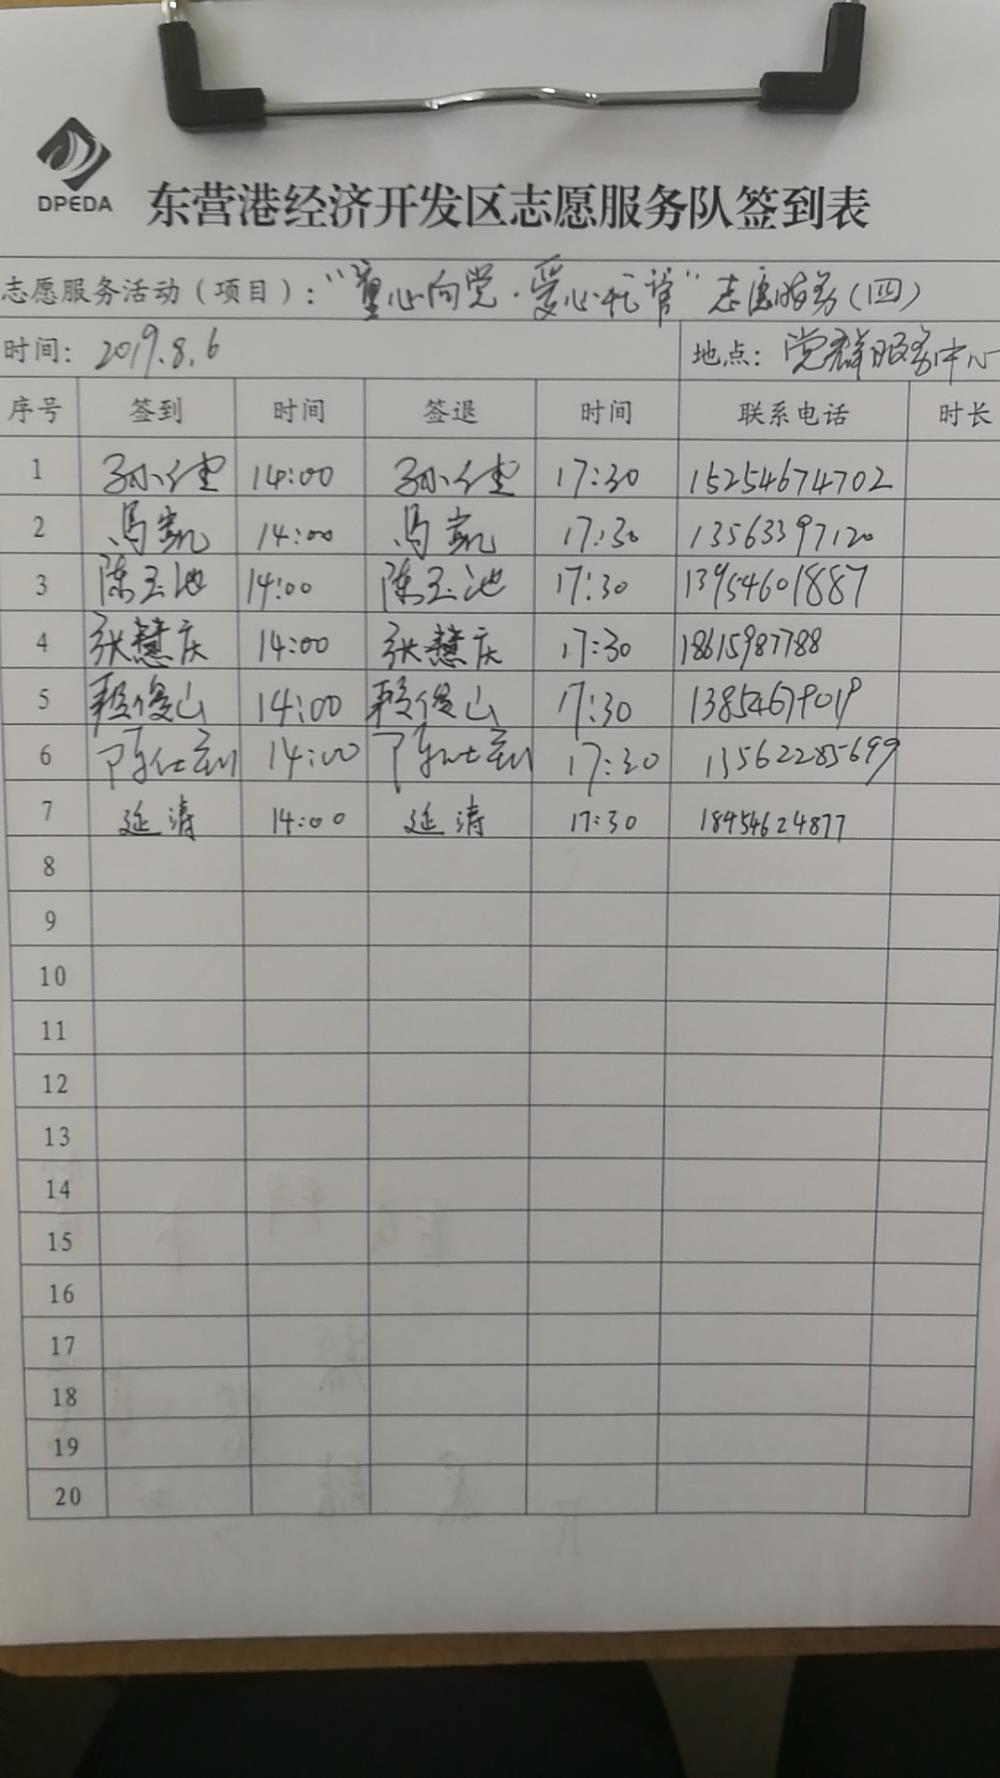 DPEDA
东营港经济开发区志愿服务队签到表
志愿服务活动（项目）：“童心向党·爱心托管”志愿服务（四）
时间：2019.8.6 地点：党群服务中心
序号 签到 时间 签退 时间 联系电话 时长
1 孙仕忠 14:00 孙仕忠 17:30 15254674702
2 马凯 14:00 马凯 17:30 13563397120
3 陈玉池 14:00 陈玉池 17:30 13954601887
4 张慧庆 14:00 张慧庆 17:30 18615987788
5 俊山 14:00 俊山 17:30 13854679019
6 14:00 17:30 13562285699
7 延涛 14:00 延涛 17:30 18954624877
8
9
10
11
12
13
14
15
16
17
18
19
20